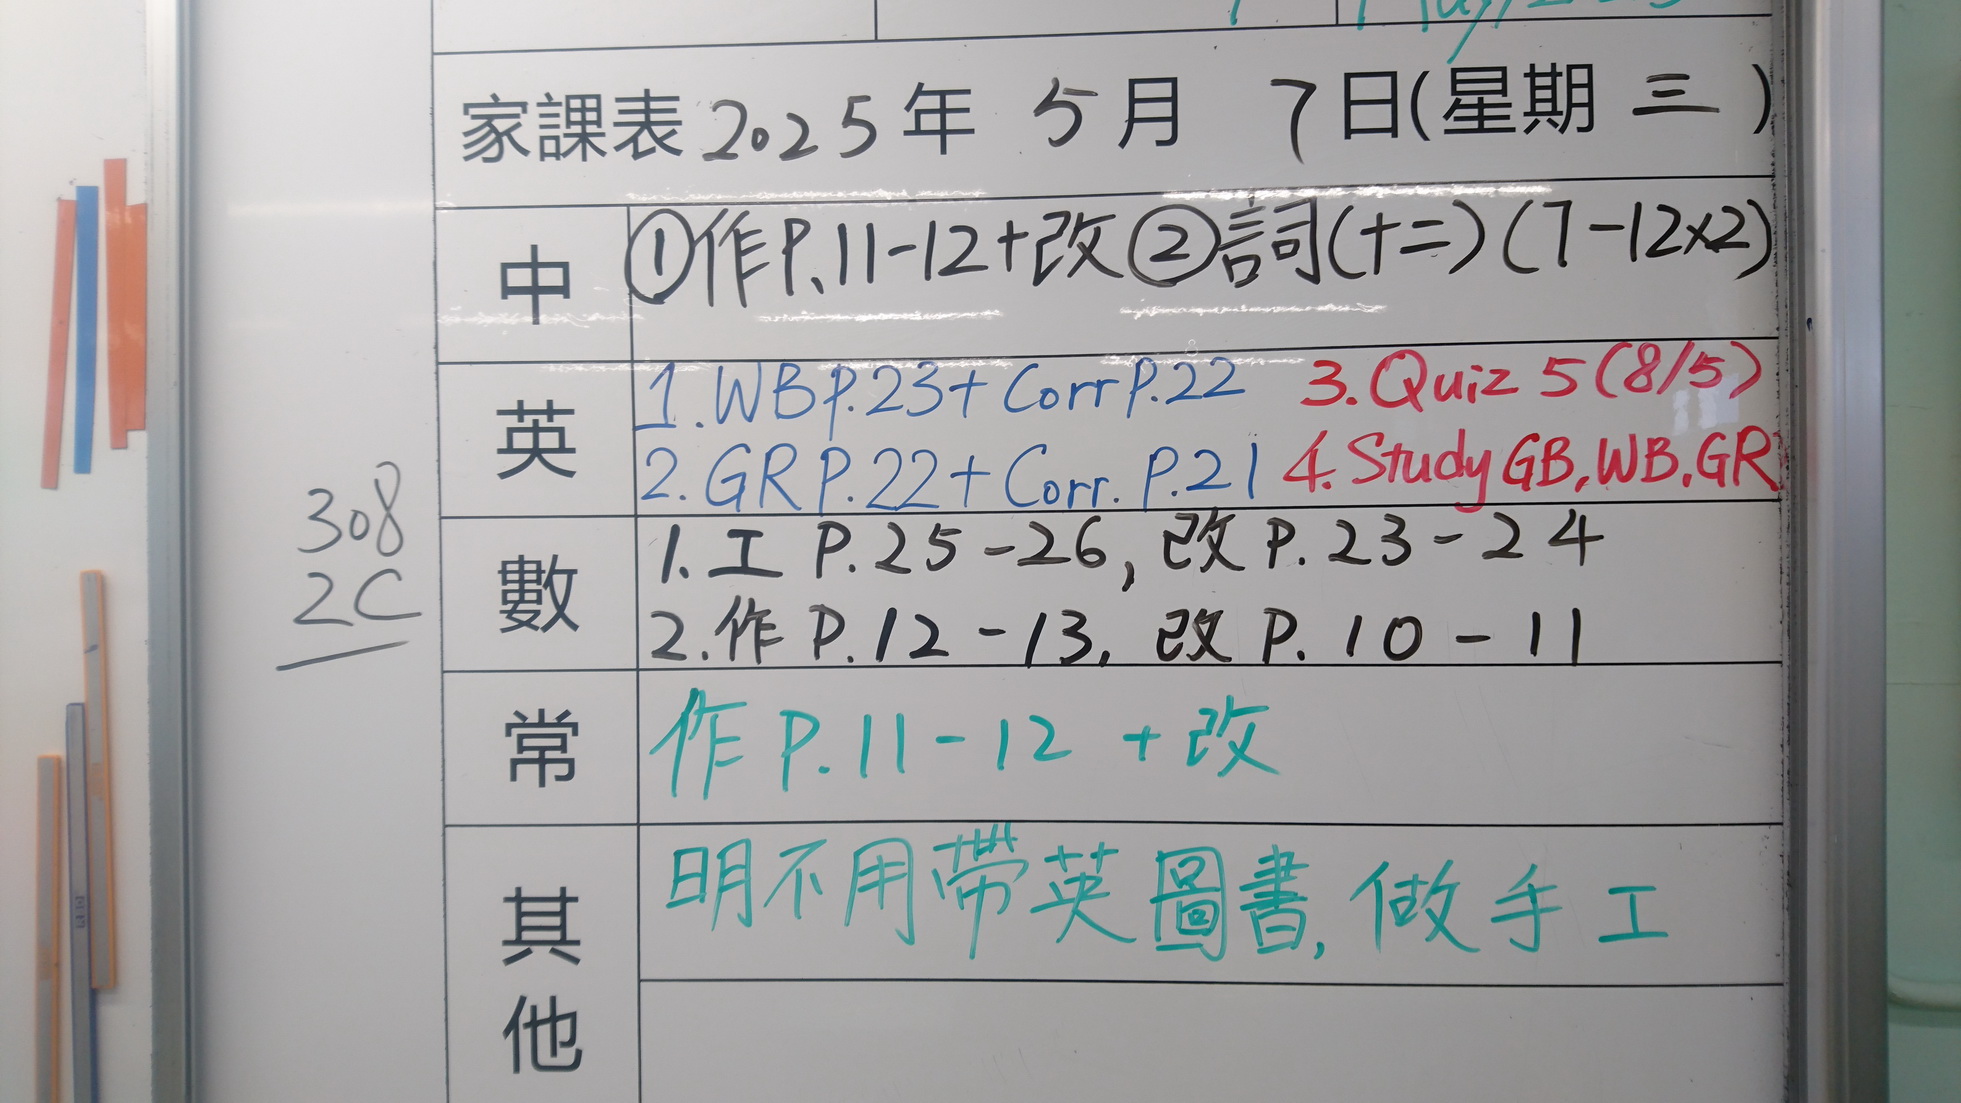 家課表 2025年 5月 7日(星期 三)
中 ①作P.11-12+改 ②詞(十二)(7-12×2)
英 1.WB P.23+ Corr P.22 3.Quiz 5(8/5)
2.GR P.22+ Corr. P.21 4.Study GB,WB.GR
數 1.工 P.25-26, 改 P.23-24
2.作 P.12-13, 改 P.10-11
308
2C
常 作 P.11-12 +改
其他 明不用帶英圖書, 做手工